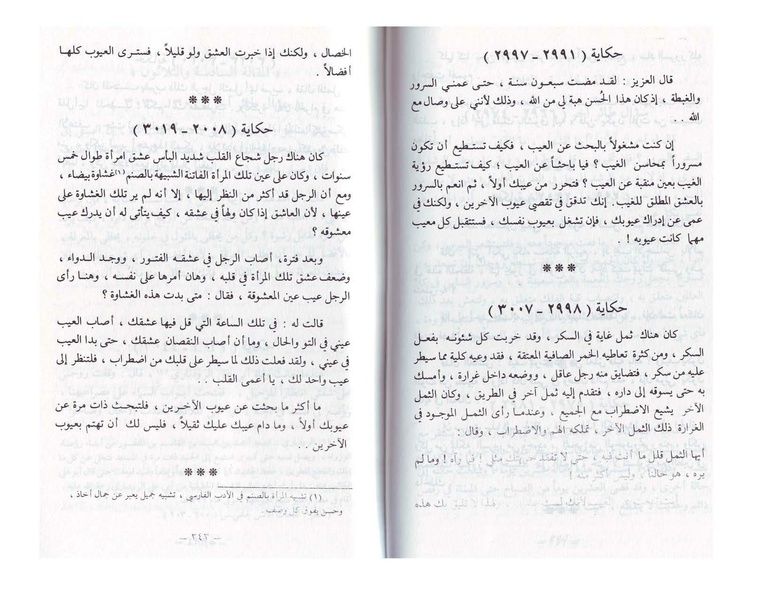 حكاية ( ٢٩٩١ - ٢٩٩٧ )
قال العزيز : لقد مضت سبعون سنة ، حتى عمني السرور
والغبطة ، إذ كان هذا الحُسن هبة لي من الله ، وذلك لأنني على وصال مع
الله . .
إن كنت مشغولاً بالبحث عن العيب ، فكيف تستطيع أن تكون
مسروراً بمحاسن الغيب ؟ فيا باحثاً عن العيب ؛ كيف تستطيع رؤية
الغيب بعين منقبة عن العيب ؟ فتحرر من عيبك أولاً ، ثم انعم بالسرور
بالعشق المطلق للغيب. إنك تدقق في تقصي عيوب الآخرين ، ولكنك في
عمى عن إدراك عيوبك ، فإن تشغل بعيوب نفسك ، فستتقبل كل معيب
مهما كانت عيوبه ! .
***
حكاية ( ٢٩٩٨ - ٣٠٠٧ )
كان هناك ثمل غاية في السكر ، وقد خربت كل شئونه بفعل
السكر ، ومن كثرة تعاطيه الخمر الصافية المعتقة ، فقد وعيه كلية مما سيطر
عليه من سكر ، فتضايق منه رجل عاقل ، ووضعه داخل غرارة ، وأمسك
به حتى يسوقه إلى داره ، فتقدم إليه ثمل آخر في الطريق ، وكان الثمل
الآخر يشيع الاضطراب مع الجميع ، وعندما رأى الثمل الموجود في
الغرارة ذلك الثمل الآخر ، تملكه الهم والاضطراب ، وقال :
أيها الثمل قلل ما أنت فيه ، حتى لا مثلي ! وما لم
يره ، هو حالنا ، وليس أكثر منه !
بك هذه
الخصال ، ولكنك إذا خبرت العشق ولو قليلاً ، فسترى العيوب كلها
أفضالاً .
***
حكاية ( ٢٠٠٨ - ٣٠١٩ )
كان هناك رجل شجاع القلب شديد البأس عشق امرأة طوال خمس
سنوات ، وكان على عين تلك المرأة الفاتنة الشبيهة بالصنم (١) غشاوة بيضاء ،
ومع أن الرجل قد أكثر من النظر إليها ، إلا أنه لم ير تلك الغشاوة على
عينها ، لأن العاشق إذا كان ولهاً في عشقه ، كيف يتأتى له أن يدرك عيب
معشوقه ؟
وبعد فترة، أصاب الرجل في عشقه الفتور ، ووجد الدواء ،
وضعف عشق تلك المرأة في قلبه ، وهان أمرها على نفسه ، وهنا رأى
الرجل عيب عين المعشوقة ، فقال : متى بدت هذه الغشاوة ؟
قالت له : في تلك الساعة التي قل فيها عشقك ، أصاب العيب
عيني في التو والحال ، وما أن أصاب النقصان عشقك ، حتى بدا العيب
في عيني ، ولقد فعلت ذلك لما سيطر على قلبك من اضطراب ، فلتنظر إلى
عيب واحد لك ، يا أعمى القلب . .
ما أكثر ما بحثت عن عيوب الآخرين ، فلتبحث ذات مرة عن
عيوبك أولاً ، وما دام عيبك عليك ثقيلاً ، فليس لك أن تهتم بعيوب
الآخرين . .
***
(١) تشبيه المرأة بالصنم في الأدب الفارسي ، تشبيه جميل يعبر عن جمال أخاذ ،
وحسن يفوق كل وصف.
— ٣٤٢ —